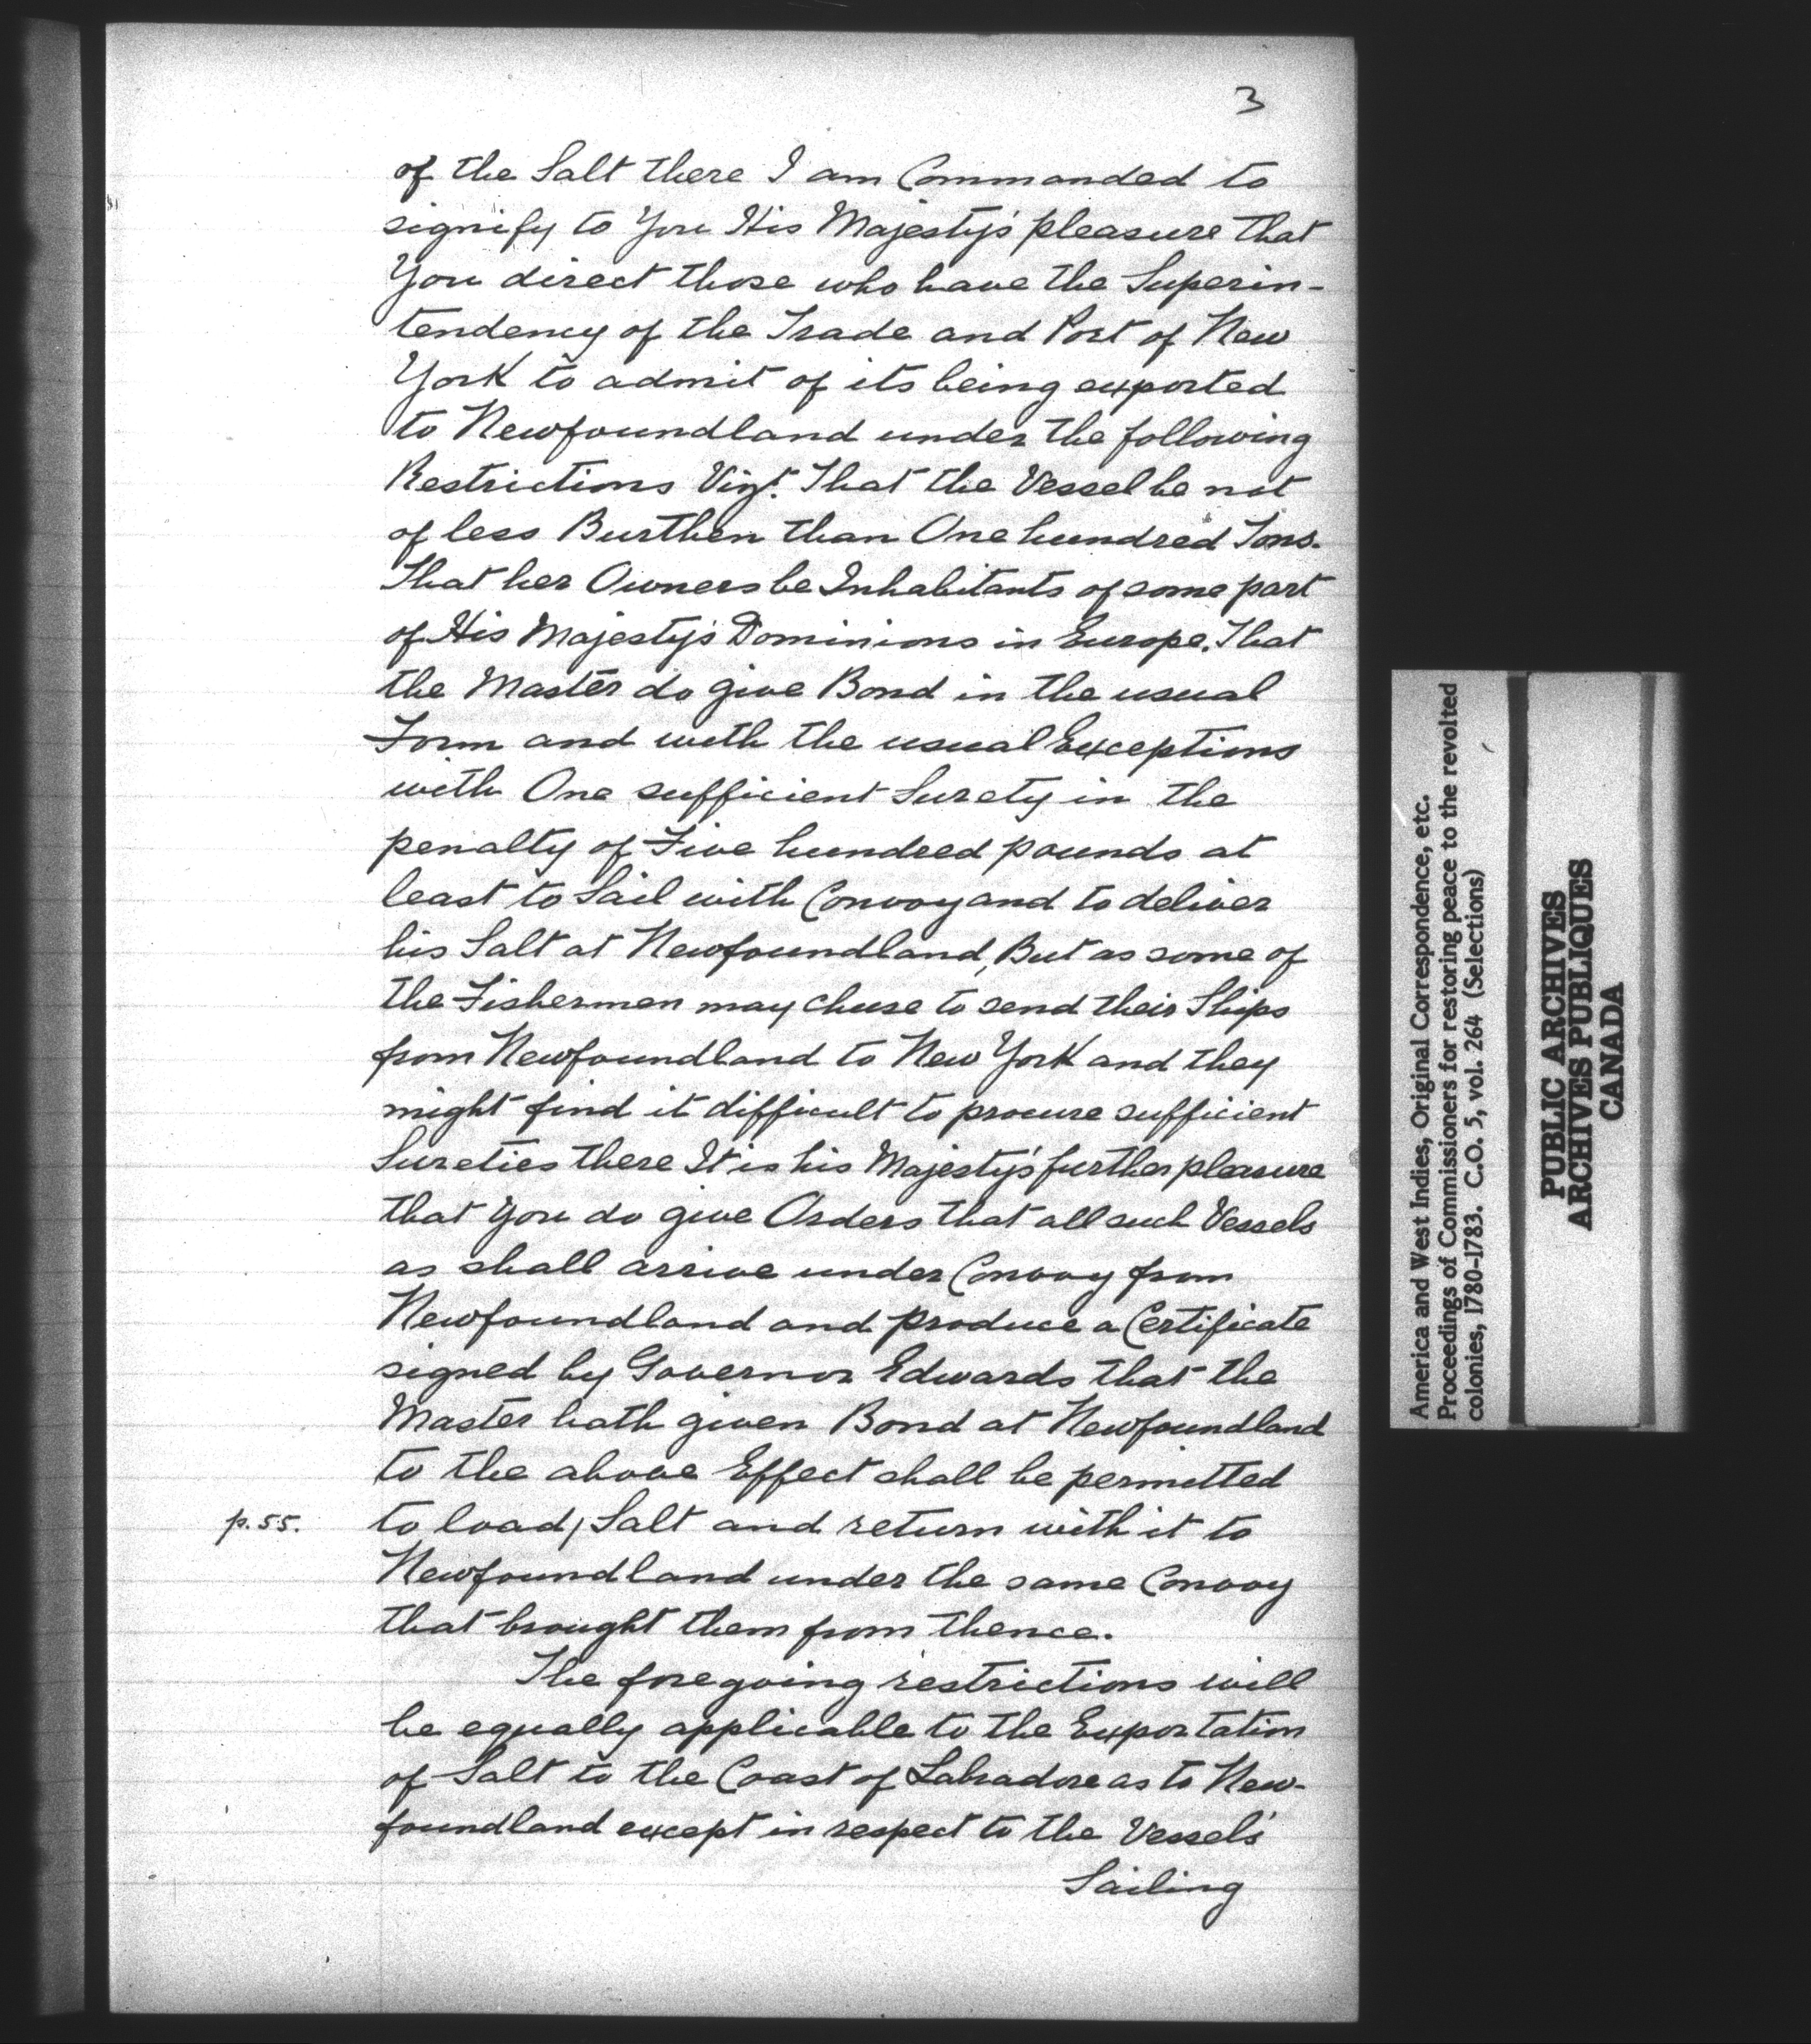 3
of the Salt there I am Commanded to
signify to You His Majesty's pleasure that
You direct those who have the Superin-
tendency of the Trade and Port of New
York to admit of its being exported
to Newfoundland under the following
Restrictions Vizt. That the Vessel be not
of less Burthen than One hundred Tons.
That her Owners be Inhabitants of some part
of His Majesty's Dominions in Europe. That
the Master do give Bond in the usual
Form and with the usual Exceptions
with One sufficient Surety in the
penalty of Five hundred pounds at
least to Sail with Convoy and to deliver
his Salt at Newfoundland, But as some of
the Fishermen may chuse to send their Ships
from Newfoundland to New York and they
might find it difficult to procure sufficient
Sureties there It is his Majesty's further pleasure
that You do give Orders that all such Vessels
as shall arrive under Convoy from
Newfoundland and produce a Certificate
signed by Governor Edwards that the
Master hath given Bond at Newfoundland
to the above Effect shall be permitted
p. 55. to load / Salt and return with it to
Newfoundland under the same Convoy
that brought them from thence.
The foregoing restrictions will
be equally applicable to the Exportation
of Salt to the Coast of Labradore as to New-
foundland except in respect to the Vessels'
Sailing
America and West Indies, Original Correspondence, etc.
Proceedings of Commissioners for restoring peace to the revolted
colonies, 1780-1783. C.O. 5, vol. 264 (Selections)
PUBLIC ARCHIVES
ARCHIVES PUBLIQUES
CANADA